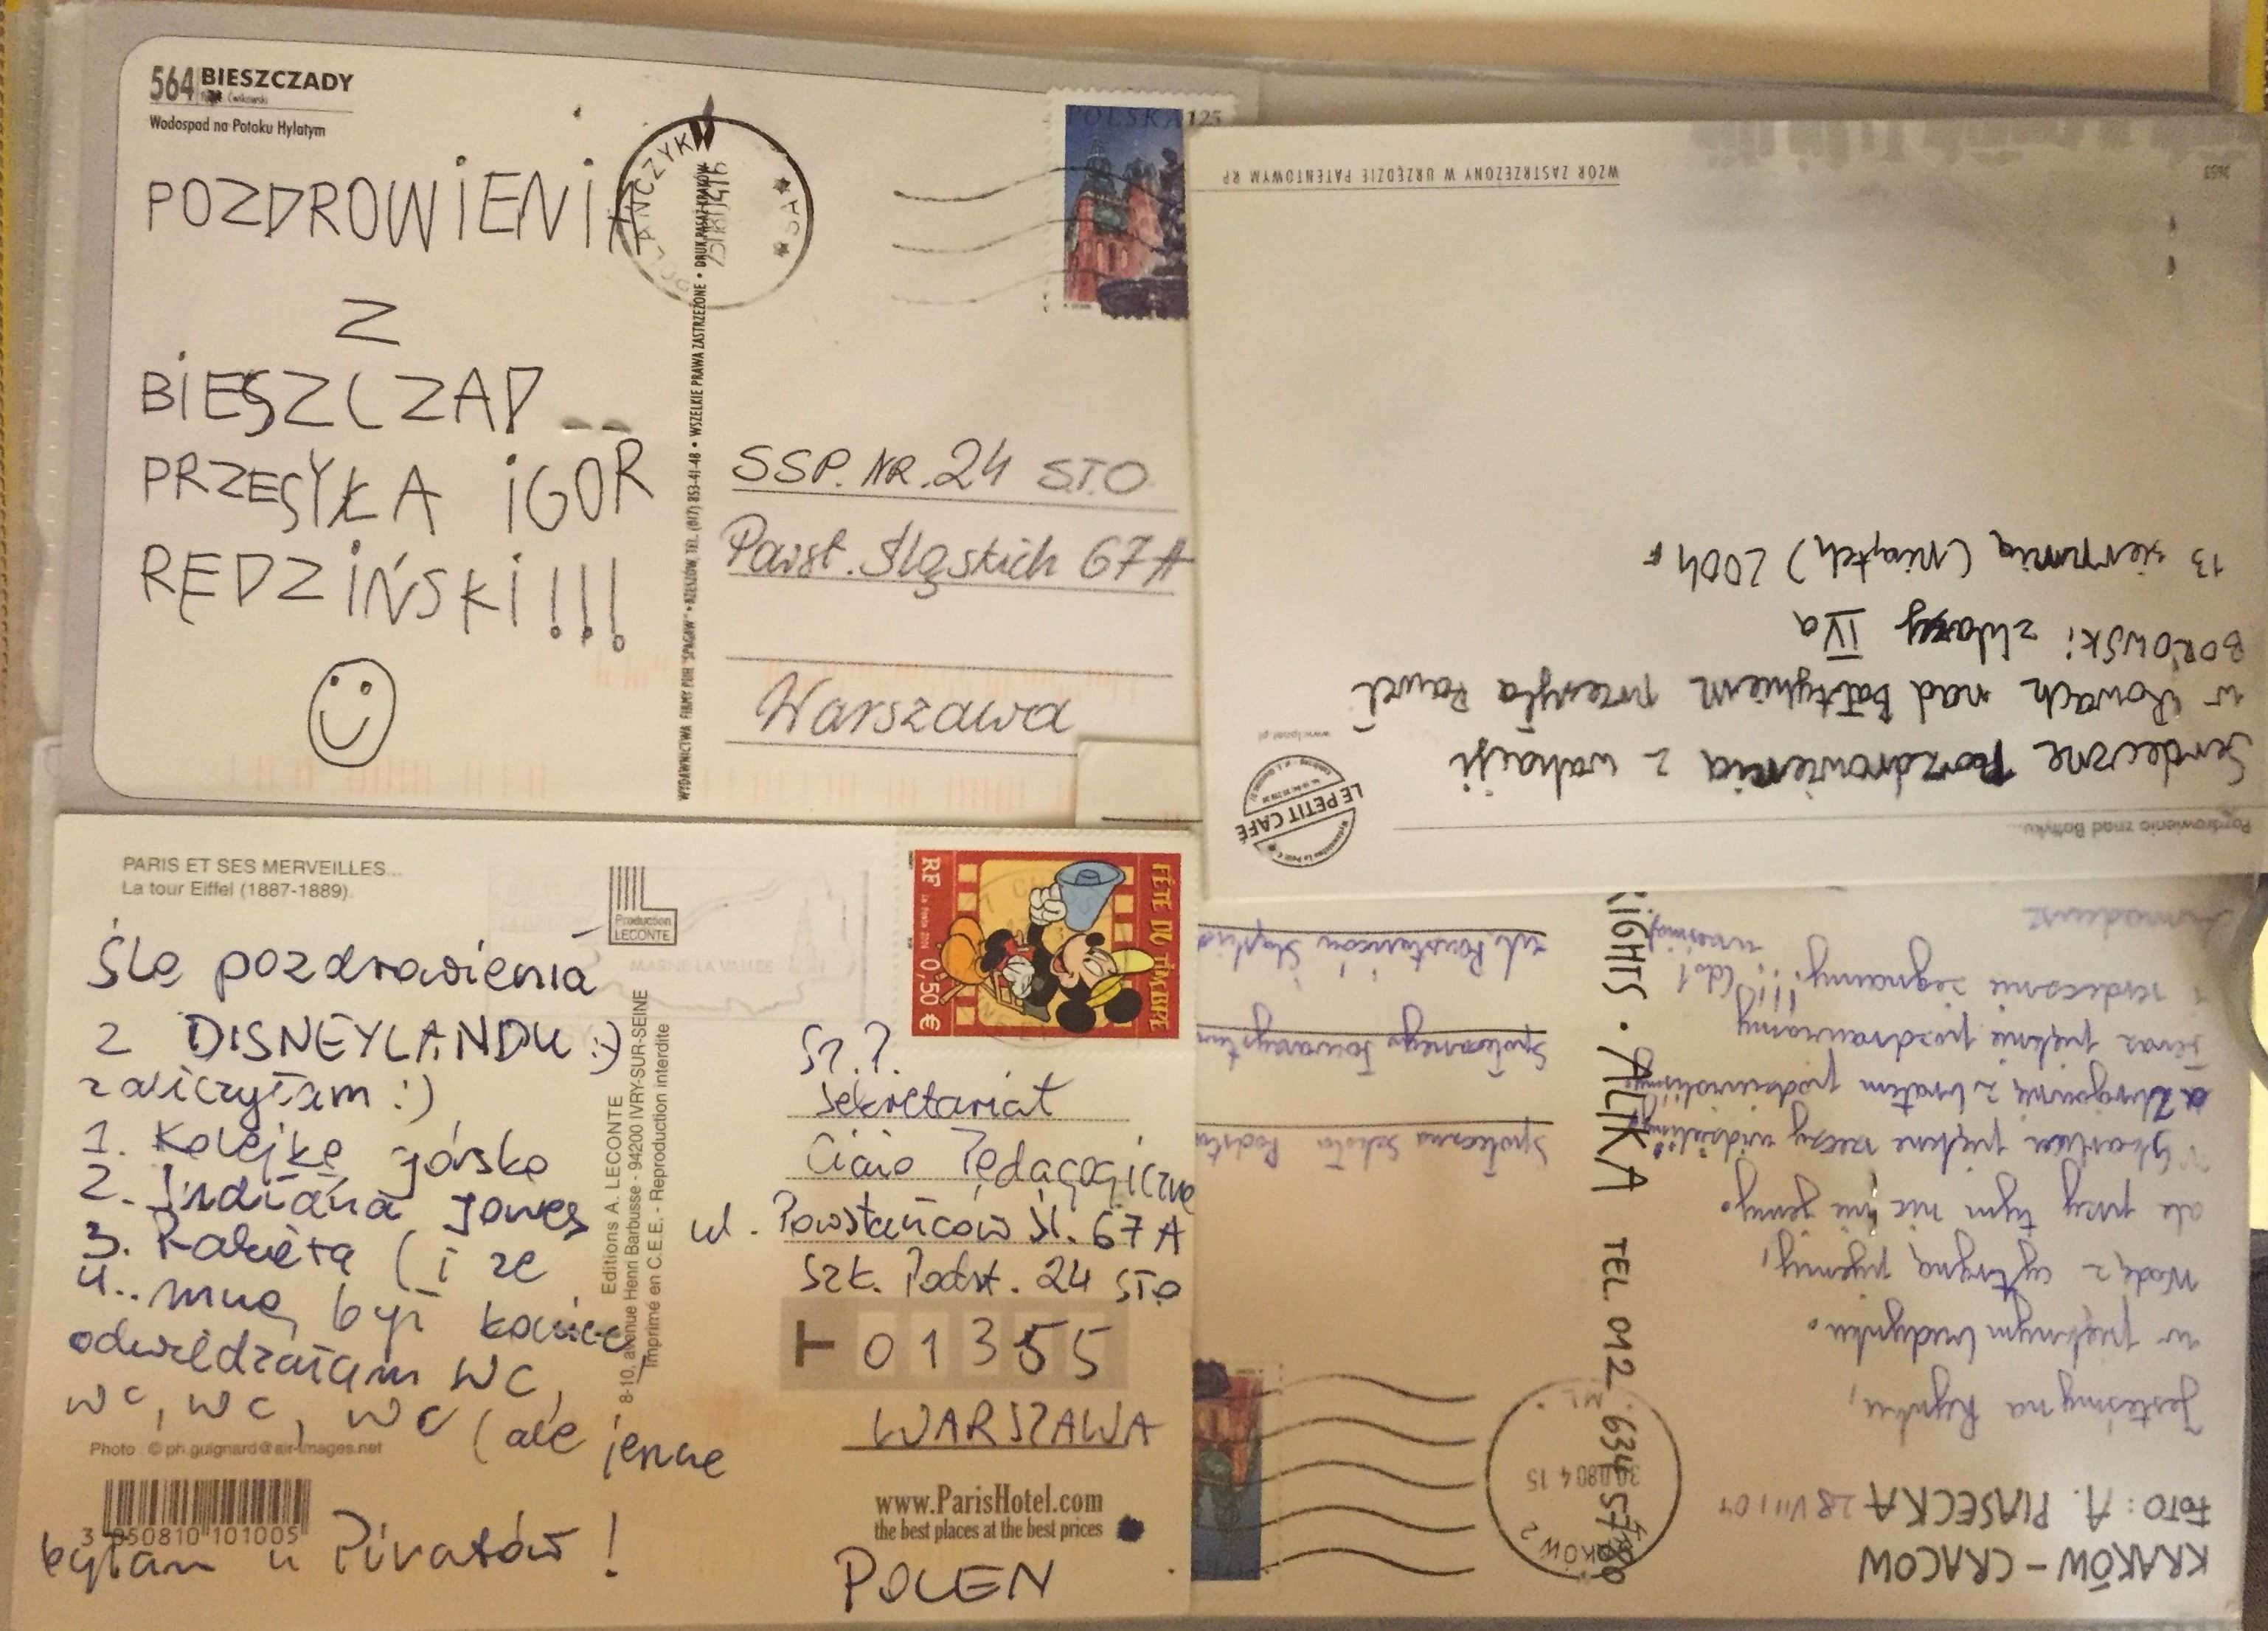 564 BIESZCZADY
Wodospad na Potoku Hylatym
POZDROWIENIA
Z
BIESZCZAD
PRZESYŁA IGOR
RĘDZIŃSKI!!!
WYDAWNICTWA FIRMY PUH "SPAGAW" • RZESZÓW, TEL. (017) 853-41-48 • WSZELKIE PRAWA ZASTRZEŻONE • DRUK PASAŻ KRAKÓW
POLAŃCZYK
POLSKA 125
SSP. NR. 24 STO
Powst. Śląskich 67A
Warszawa
PARIS ET SES MERVEILLES...
La tour Eiffel (1887-1889).
Production
LECONTE
MARNE LA VALLEE
Śle pozdrowienia
z DISNEYLANDU :)
zaliczyłam :)
1. Kolejkę górską
2. Indiana Jones
3. Rakietą (i ze
4.. mną był koniec
odwiedzałam WC,
WC, WC, WC (ale jeszcze
byłam u Piratów!
Photo : © ph.guignard@air-images.net
3 050810 101005
Editions A. LECONTE
8-10, avenue Henri Barbusse - 94200 IVRY-SUR-SEINE
Imprimé en C.E.E. - Reproduction interdite
FÊTE DU TIMBRE
RF
0,50 €
Sz.?
Sekretariat
Ciało Pedagogiczne
ul. Powstańców Śl. 67A
Szk. Podst. 24 STO
T 01355
WARSZAWA
www.ParisHotel.com
the best places at the best prices
POLEN
Pozdrowienia znad Bałtyku...
LE PETIT CAFE
Serdeczne pozdrowienia z wakacji
w Rowach nad Bałtykiem przesyła Paweł
BOROWSKI z klasy IVa
13 sierpnia (piątek) 2004 r
WZÓR ZASTRZEŻONY W URZĘDZIE PATENTOWYM RP
KRAKÓW - CRACOW
FOTO: A. PIASECKA 28 VIII 04
Jesteśmy na Rynku,
w pięknym budynku.
Wodę z cytryną pijemy,
ale przy tym nic nie jemy.
piękne rzeczy widzieliśmy
z bratem podziwialiśmy
Teraz pięknie pozdrawiamy
i serdecznie żegnamy!
RIGHTS • ALKA TEL. 012 634 57 80
Społeczna Szkoła Podsta
Społecznego Towarzystwa
ul. Powstańców Śląskich